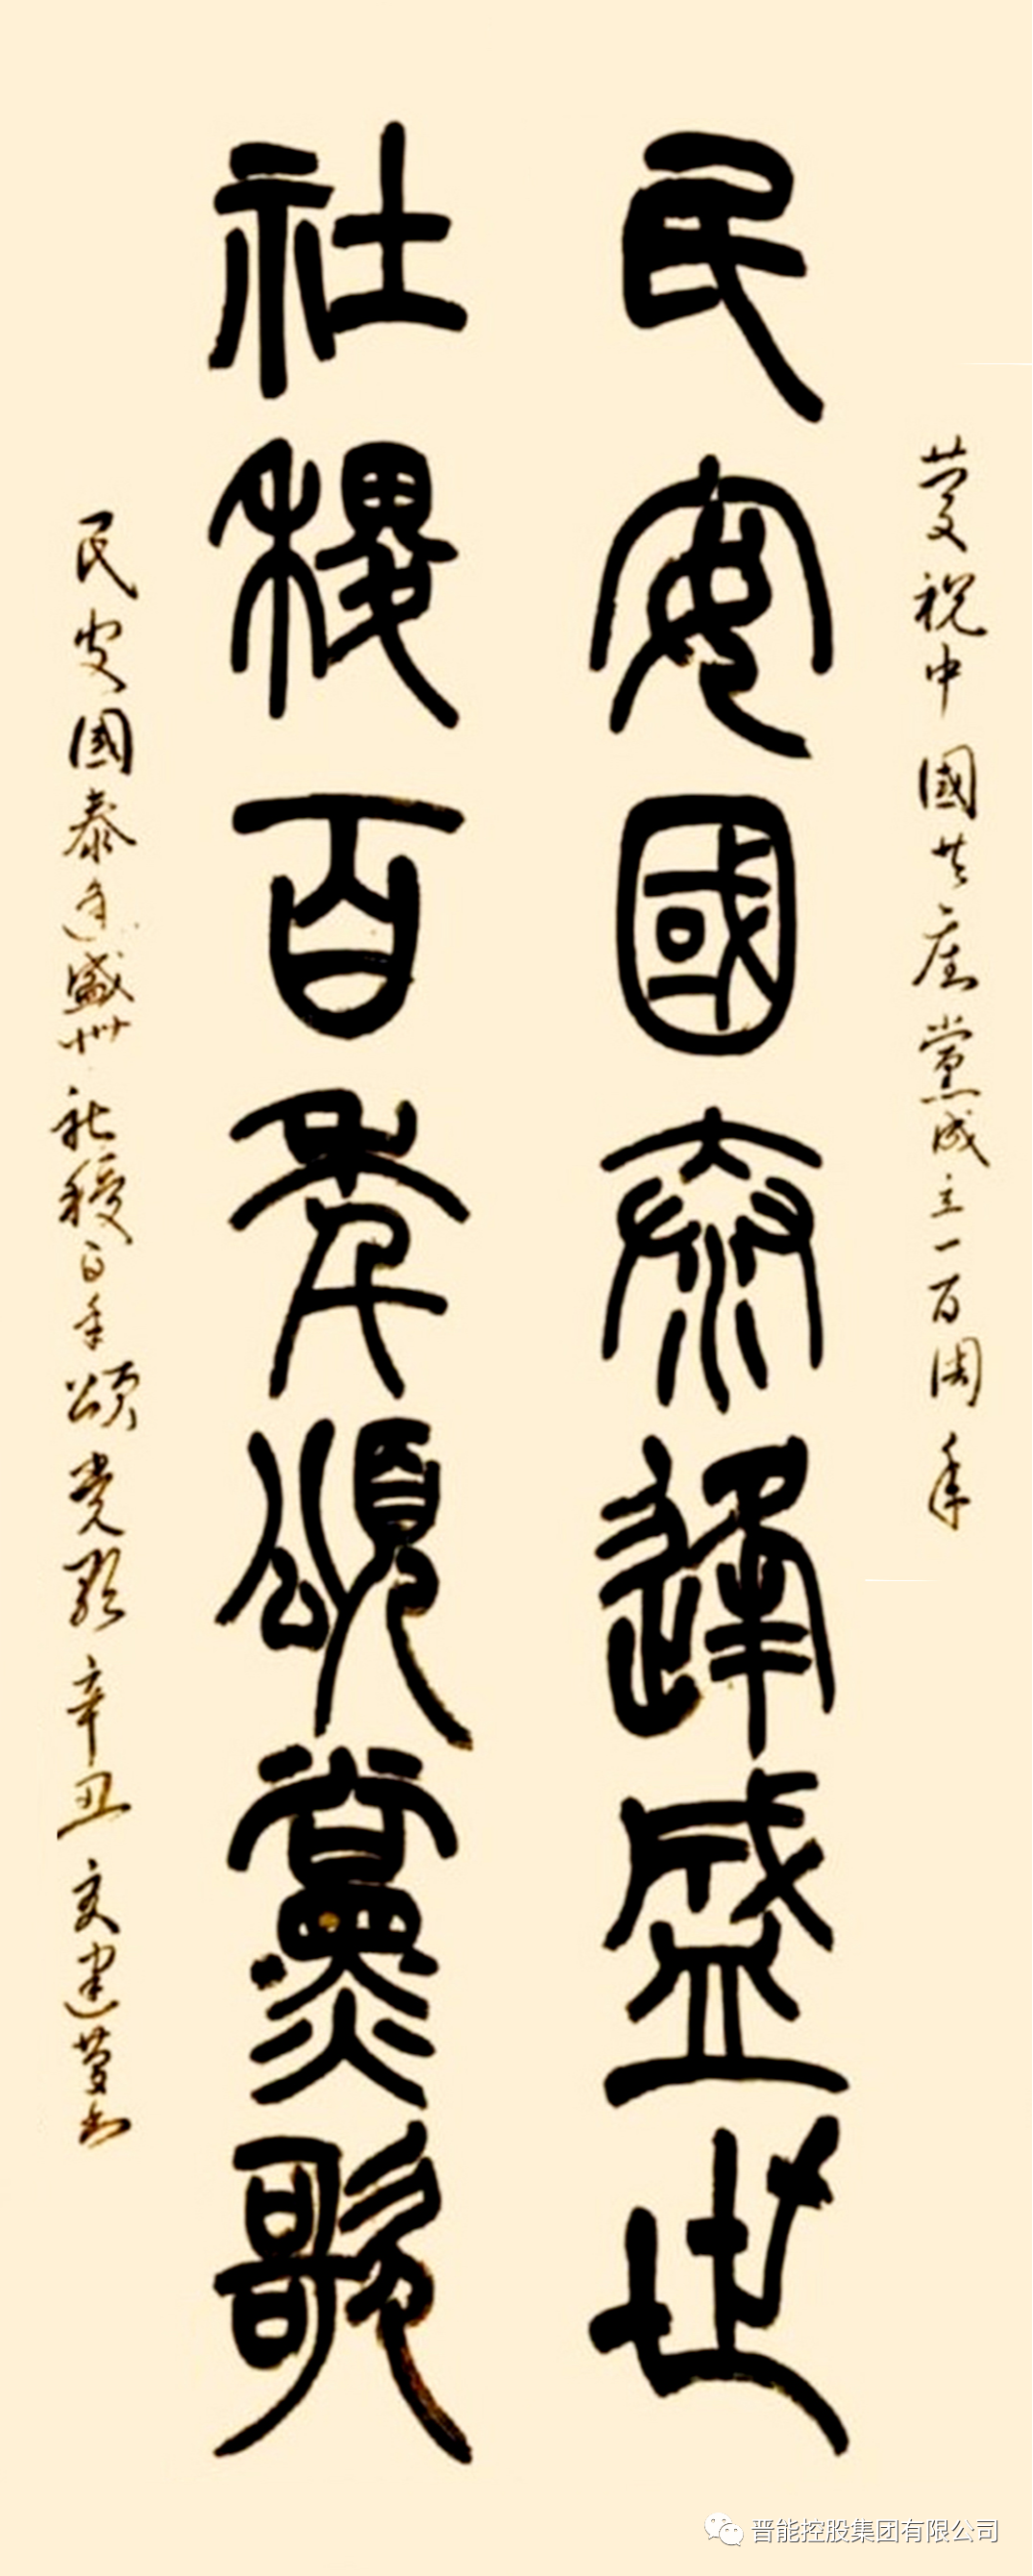 慶祝中國共産黨成立一百周年
民安國泰逢盛世
社稷百年頌黨歌
民安國泰逢盛世社稷百年頌党歌 辛丑 建 书
晋能控股集团有限公司